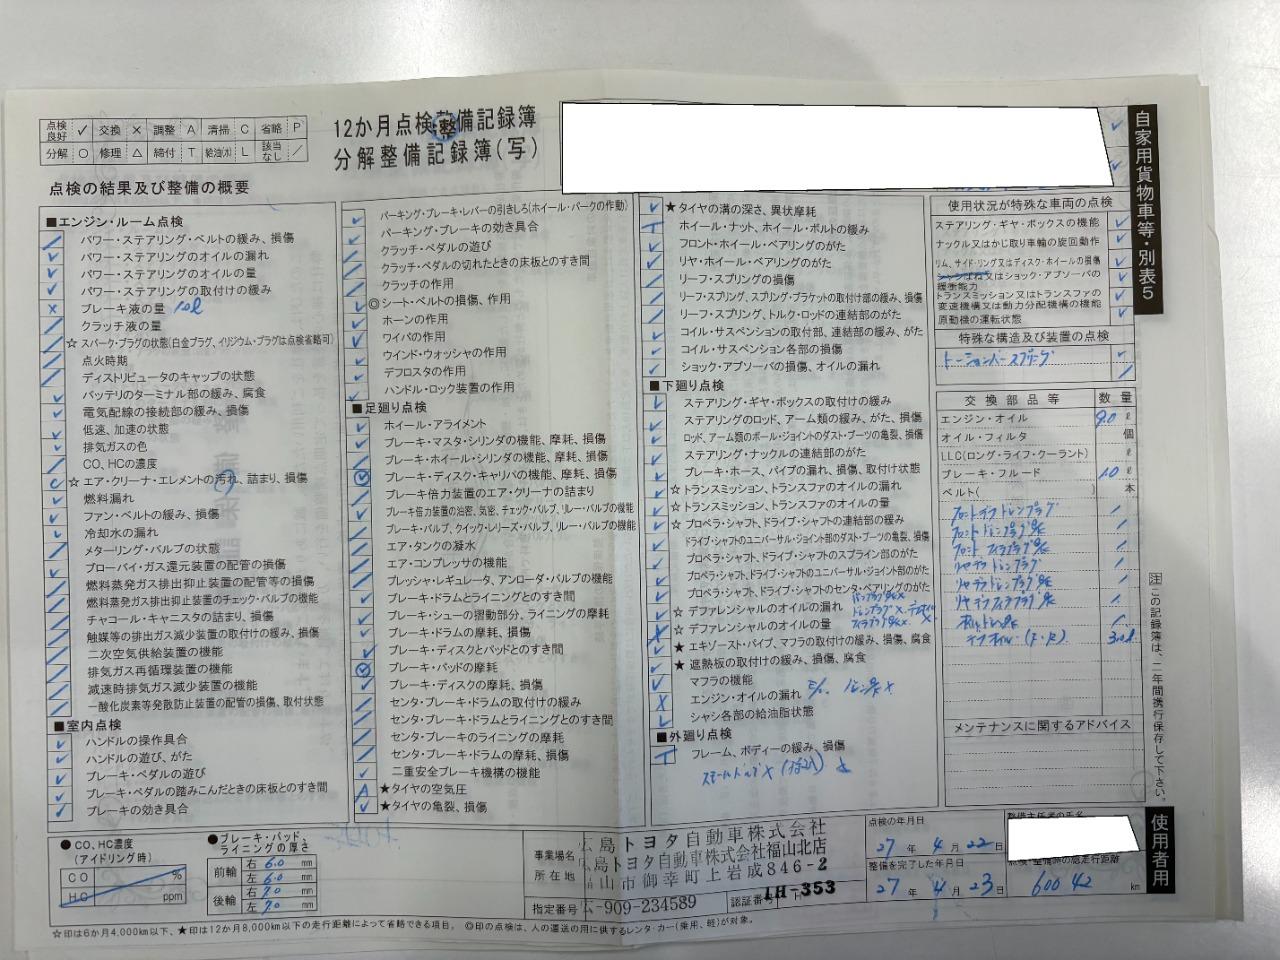 点検良好 ✓ 交換 × 調整 A 清掃 C 省略 P
分解 ○ 修理 △ 締付 T 給油(水) L 該当なし ／
12か月点検整備記録簿
分解整備記録簿(写)
自家用貨物車等・別表5
点検の結果及び整備の概要
■エンジン・ルーム点検
パワー・ステアリング・ベルトの緩み、損傷
パワー・ステアリングのオイルの漏れ
パワー・ステアリングのオイルの量
パワー・ステアリングの取付けの緩み
ブレーキ液の量
クラッチ液の量
☆スパーク・プラグの状態(白金プラグ、イリジウム・プラグは点検省略可)
点火時期
ディストリビュータのキャップの状態
バッテリのターミナル部の緩み、腐食
電気配線の接続部の緩み、損傷
低速、加速の状態
排気ガスの色
CO、HCの濃度
☆エア・クリーナ・エレメントの汚れ、詰まり、損傷
燃料漏れ
ファン・ベルトの緩み、損傷
冷却水の漏れ
メターリング・バルブの状態
ブローバイ・ガス還元装置の配管の損傷
燃料蒸発ガス排出抑止装置の配管等の損傷
燃料蒸発ガス排出抑止装置のチェック・バルブの機能
チャコール・キャニスタの詰まり、損傷
触媒等の排出ガス減少装置の取付けの緩み、損傷
二次空気供給装置の機能
排気ガス再循環装置の機能
減速時排気ガス減少装置の機能
一酸化炭素等発散防止装置の配管の損傷、取付状態
■室内点検
ハンドルの操作具合
ハンドルの遊び、がた
ブレーキ・ペダルの遊び
ブレーキ・ペダルの踏みこんだときの床板とのすき間
ブレーキの効き具合
パーキング・ブレーキ・レバーの引きしろ(ホイール・パークの作動)
パーキング・ブレーキの効き具合
クラッチ・ペダルの遊び
クラッチ・ペダルの切れたときの床板とのすき間
クラッチの作用
◎シート・ベルトの損傷、作用
ホーンの作用
ワイパの作用
ウインド・ウォッシャの作用
デフロスタの作用
ハンドル・ロック装置の作用
■足廻り点検
ホイール・アライメント
ブレーキ・マスタ・シリンダの機能、摩耗、損傷
ブレーキ・ホイール・シリンダの機能、摩耗、損傷
ブレーキ・ディスク・キャリパの機能、摩耗、損傷
ブレーキ倍力装置のエア・クリーナの詰まり
ブレーキ倍力装置の油密、気密、チェック・バルブ、リレー・バルブの機能
ブレーキ・バルブ、クイック・レリーズ・バルブ、リレー・バルブの機能
エア・タンクの凝水
エア・コンプレッサの機能
プレッシャ・レギュレータ、アンローダ・バルブの機能
ブレーキ・ドラムとライニングとのすき間
ブレーキ・シューの摺動部分、ライニングの摩耗
ブレーキ・ドラムの摩耗、損傷
ブレーキ・ディスクとパッドとのすき間
ブレーキ・パッドの摩耗
ブレーキ・ディスクの摩耗、損傷
センタ・ブレーキ・ドラムの取付けの緩み
センタ・ブレーキ・ドラムとライニングとのすき間
センタ・ブレーキのライニングの摩耗
センタ・ブレーキ・ドラムの摩耗、損傷
二重安全ブレーキ機構の機能
★タイヤの空気圧
★タイヤの亀裂、損傷
★タイヤの溝の深さ、異状摩耗
ホイール・ナット、ホイール・ボルトの緩み
フロント・ホイール・ベアリングのがた
リヤ・ホイール・ベアリングのがた
リーフ・スプリングの損傷
リーフ・スプリング、スプリング・ブラケットの取付け部の緩み、損傷
リーフ・スプリング、トルク・ロッドの連結部のがた
コイル・サスペンションの取付部、連結部の緩み、がた
コイル・サスペンション各部の損傷
ショック・アブソーバの損傷、オイルの漏れ
■下廻り点検
ステアリング・ギヤ・ボックスの取付けの緩み
ステアリングのロッド、アーム類の緩み、がた、損傷
ロッド、アーム類のボール・ジョイントのダスト・ブーツの亀裂、損傷
ステアリング・ナックルの連結部のがた
ブレーキ・ホース、パイプの漏れ、損傷、取付け状態
☆トランスミッション、トランスファのオイルの漏れ
☆トランスミッション、トランスファのオイルの量
☆プロペラ・シャフト、ドライブ・シャフトの連結部の緩み
ドライブ・シャフトのユニバーサル・ジョイント部のダスト・ブーツの亀裂、損傷
プロペラ・シャフト、ドライブ・シャフトのスプライン部のがた
プロペラ・シャフト、ドライブ・シャフトのユニバーサル・ジョイント部のがた
プロペラ・シャフト、ドライブ・シャフトのセンタ・ベアリングのがた
☆デファレンシャルのオイルの漏れ
☆デファレンシャルのオイルの量
★エキゾースト・パイプ、マフラの取付けの緩み、損傷、腐食
★遮熱板の取付けの緩み、損傷、腐食
マフラの機能
エンジン・オイルの漏れ
シャシ各部の給油脂状態
■外廻り点検
フレーム、ボディーの緩み、損傷
使用状況が特殊な車両の点検
ステアリング・ギヤ・ボックスの機能
ナックル又はかじ取り車輪の旋回動作
リム、サイド・リング又はディスク・ホイールの損傷
シャシばね又はショック・アブソーバの緩衝能力
トランスミッション又はトランスファの変速機構又は動力分配機構の機能
原動機の運転状態
特殊な構造及び装置の点検
トーションバースプリング
交換部品等 数量
エンジン・オイル 9.0 ℓ
オイル・フィルタ 個
LLC(ロング・ライフ・クーラント) ℓ
ブレーキ・フルード 1.0 ℓ
ベルト( ) 本
フロントデフドレンプラグ
メンテナンスに関するアドバイス
注 この記録簿は、二年間携行保存して下さい。
使用者用
●CO、HC濃度
(アイドリング時)
CO %
HC ppm
●ブレーキ・パッド、ライニングの厚さ
前輪 右 6.0 mm
左 6.0 mm
後輪 右 7.0 mm
左 7.0 mm
事業場名 広島トヨタ自動車株式会社
広島トヨタ自動車株式会社福山北店
所在地 福山市御幸町上岩成846-2
指定番号 広-909-234589 認証番号 1H-353
点検の年月日
27年4月22日
整備を完了した年月日
27年4月23日
整備主任者の氏名
点検・整備時の総走行距離
60042 km
☆印は6か月4,000km以下、★印は12か月8,000km以下の走行距離によって省略できる項目。 ◎印の点検は、人の運送の用に供するレンタ・カー(乗用、軽)が対象。